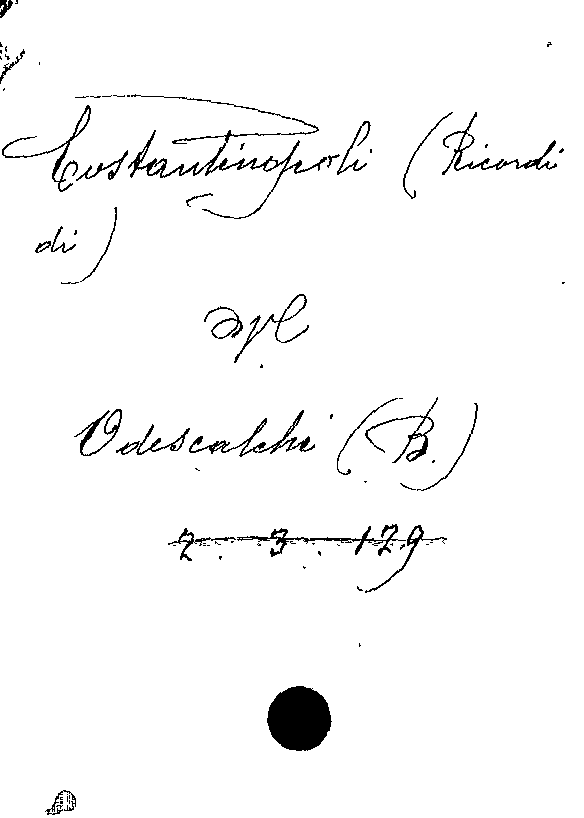 Costantinopoli (Ricordi
di)
Odescalchi (B.)
2. 3. 129